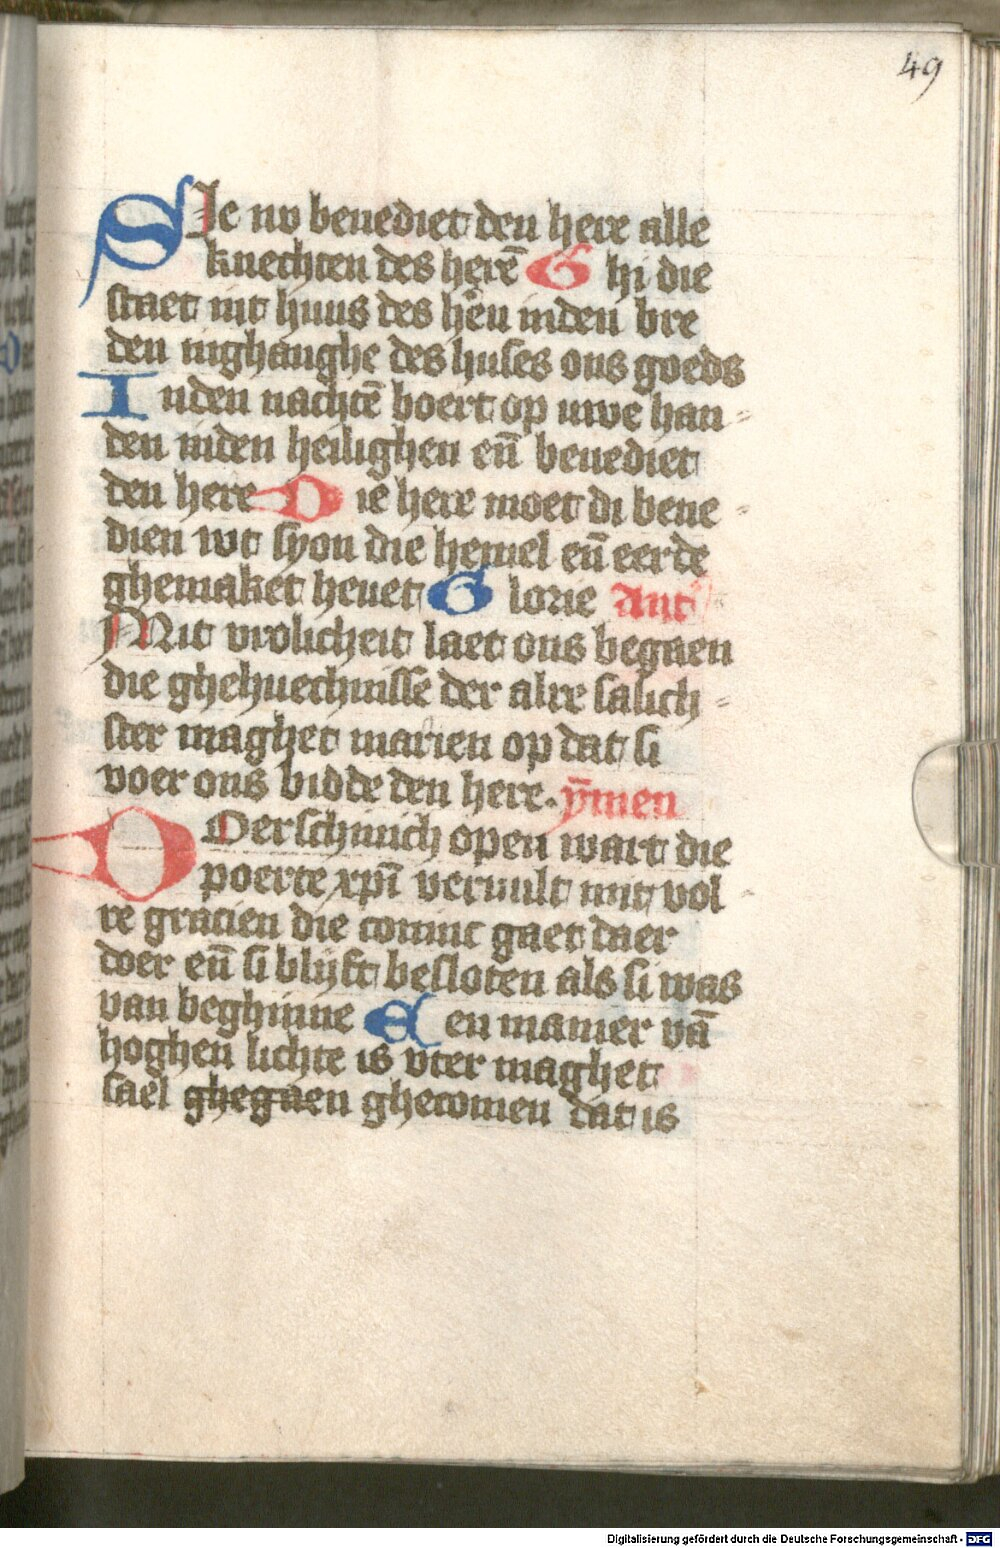 49
SIe nv benediet den here alle
knechten des herē Ghi die
staet int huus des hēn inden vre
den inghanghe des huses ons goeds
Inden nachtē boert op uwe han-
den inden heilighen eñ benediet
den here Die here moet di bene-
dien wt syon die hemel eñ eerde
ghemaket heuet Glorie Ant
Mit vrolicheit laet ons begaen
die ghehuechnisse der alre salich-
ster maghet marien op dat si
voer ons bidde den here. ȳmen
DOerschinich open wart die
poerte xpī veruult mit vol-
re gracien die coninc gaet daer
doer eñ si blijft besloten als si was
van beghinne Een manier vā
hoghen lichte is vter maghet
sael ghegaen ghecomen dat is
Digitalisierung gefördert durch die Deutsche Forschungsgemeinschaft - DFG